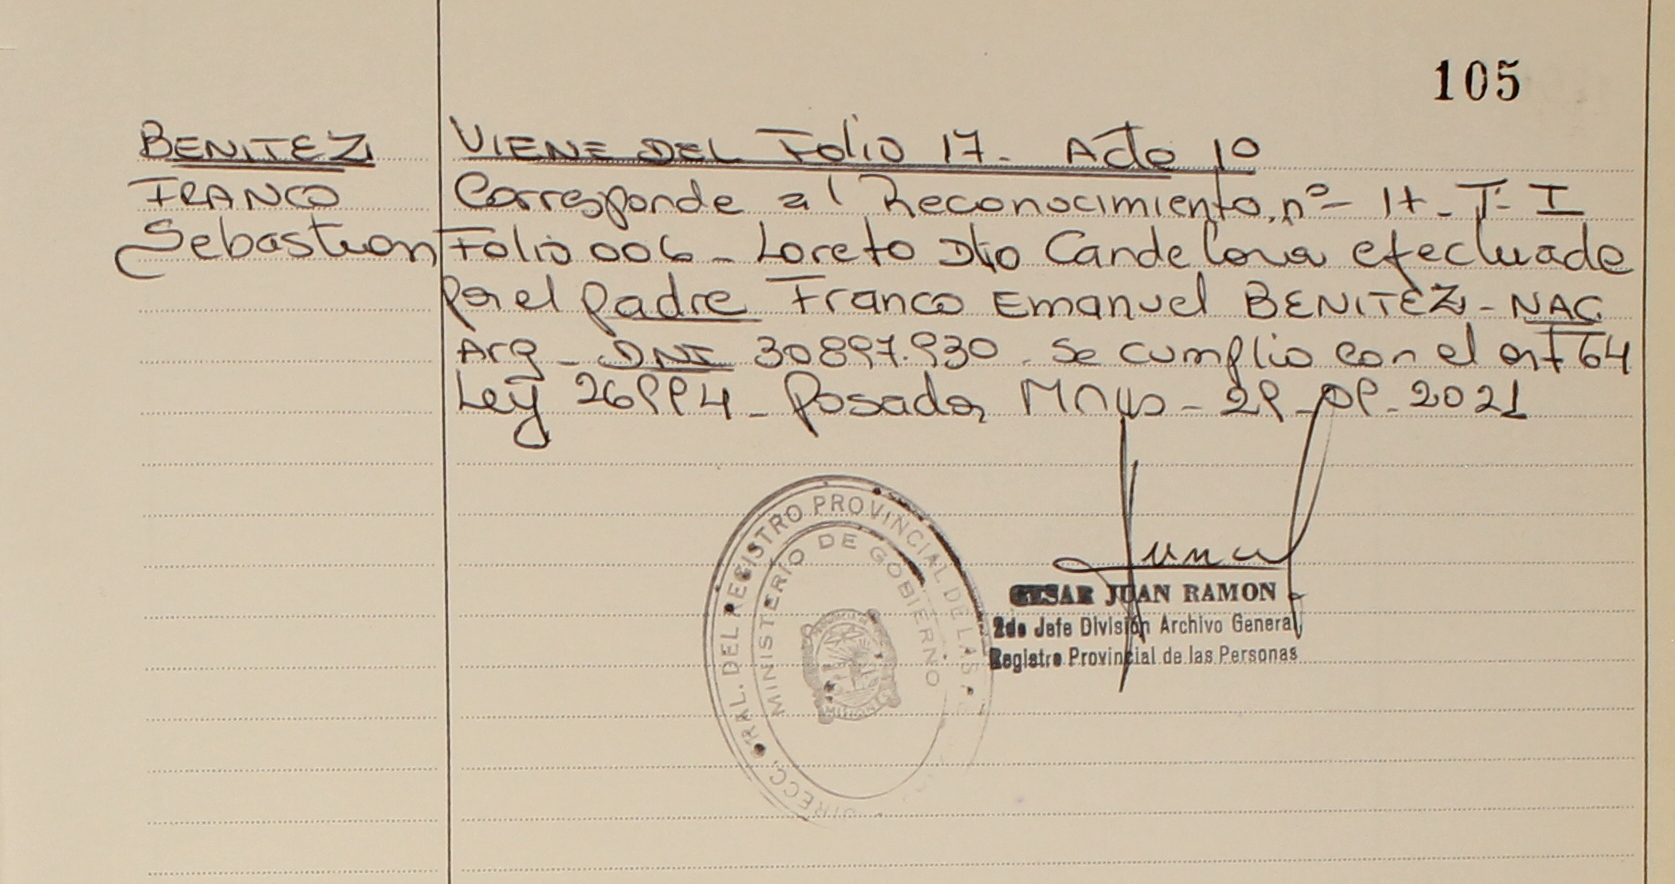 105
BENITEZ
FRANCO
Sebastian
VIENE DEL Folio 17. Acta 1º
Corresponde al Reconocimiento, nº- 17- Tº I
Folio 006 - Loreto Dto Candelaria efectuado
por el padre Franco Emanuel BENITEZ - NAC
Arg - DNI 30897.930. Se cumplio con el art 64
Ley 26994 - Posadas, Mnes - 29-09-2021
DIRECC. GRAL. DEL REGISTRO PROVINCIAL DE LAS
MINISTERIO DE GOBIERNO
MISIONES
CESAR JUAN RAMON
2do Jefe División Archivo General
Registro Provincial de las Personas